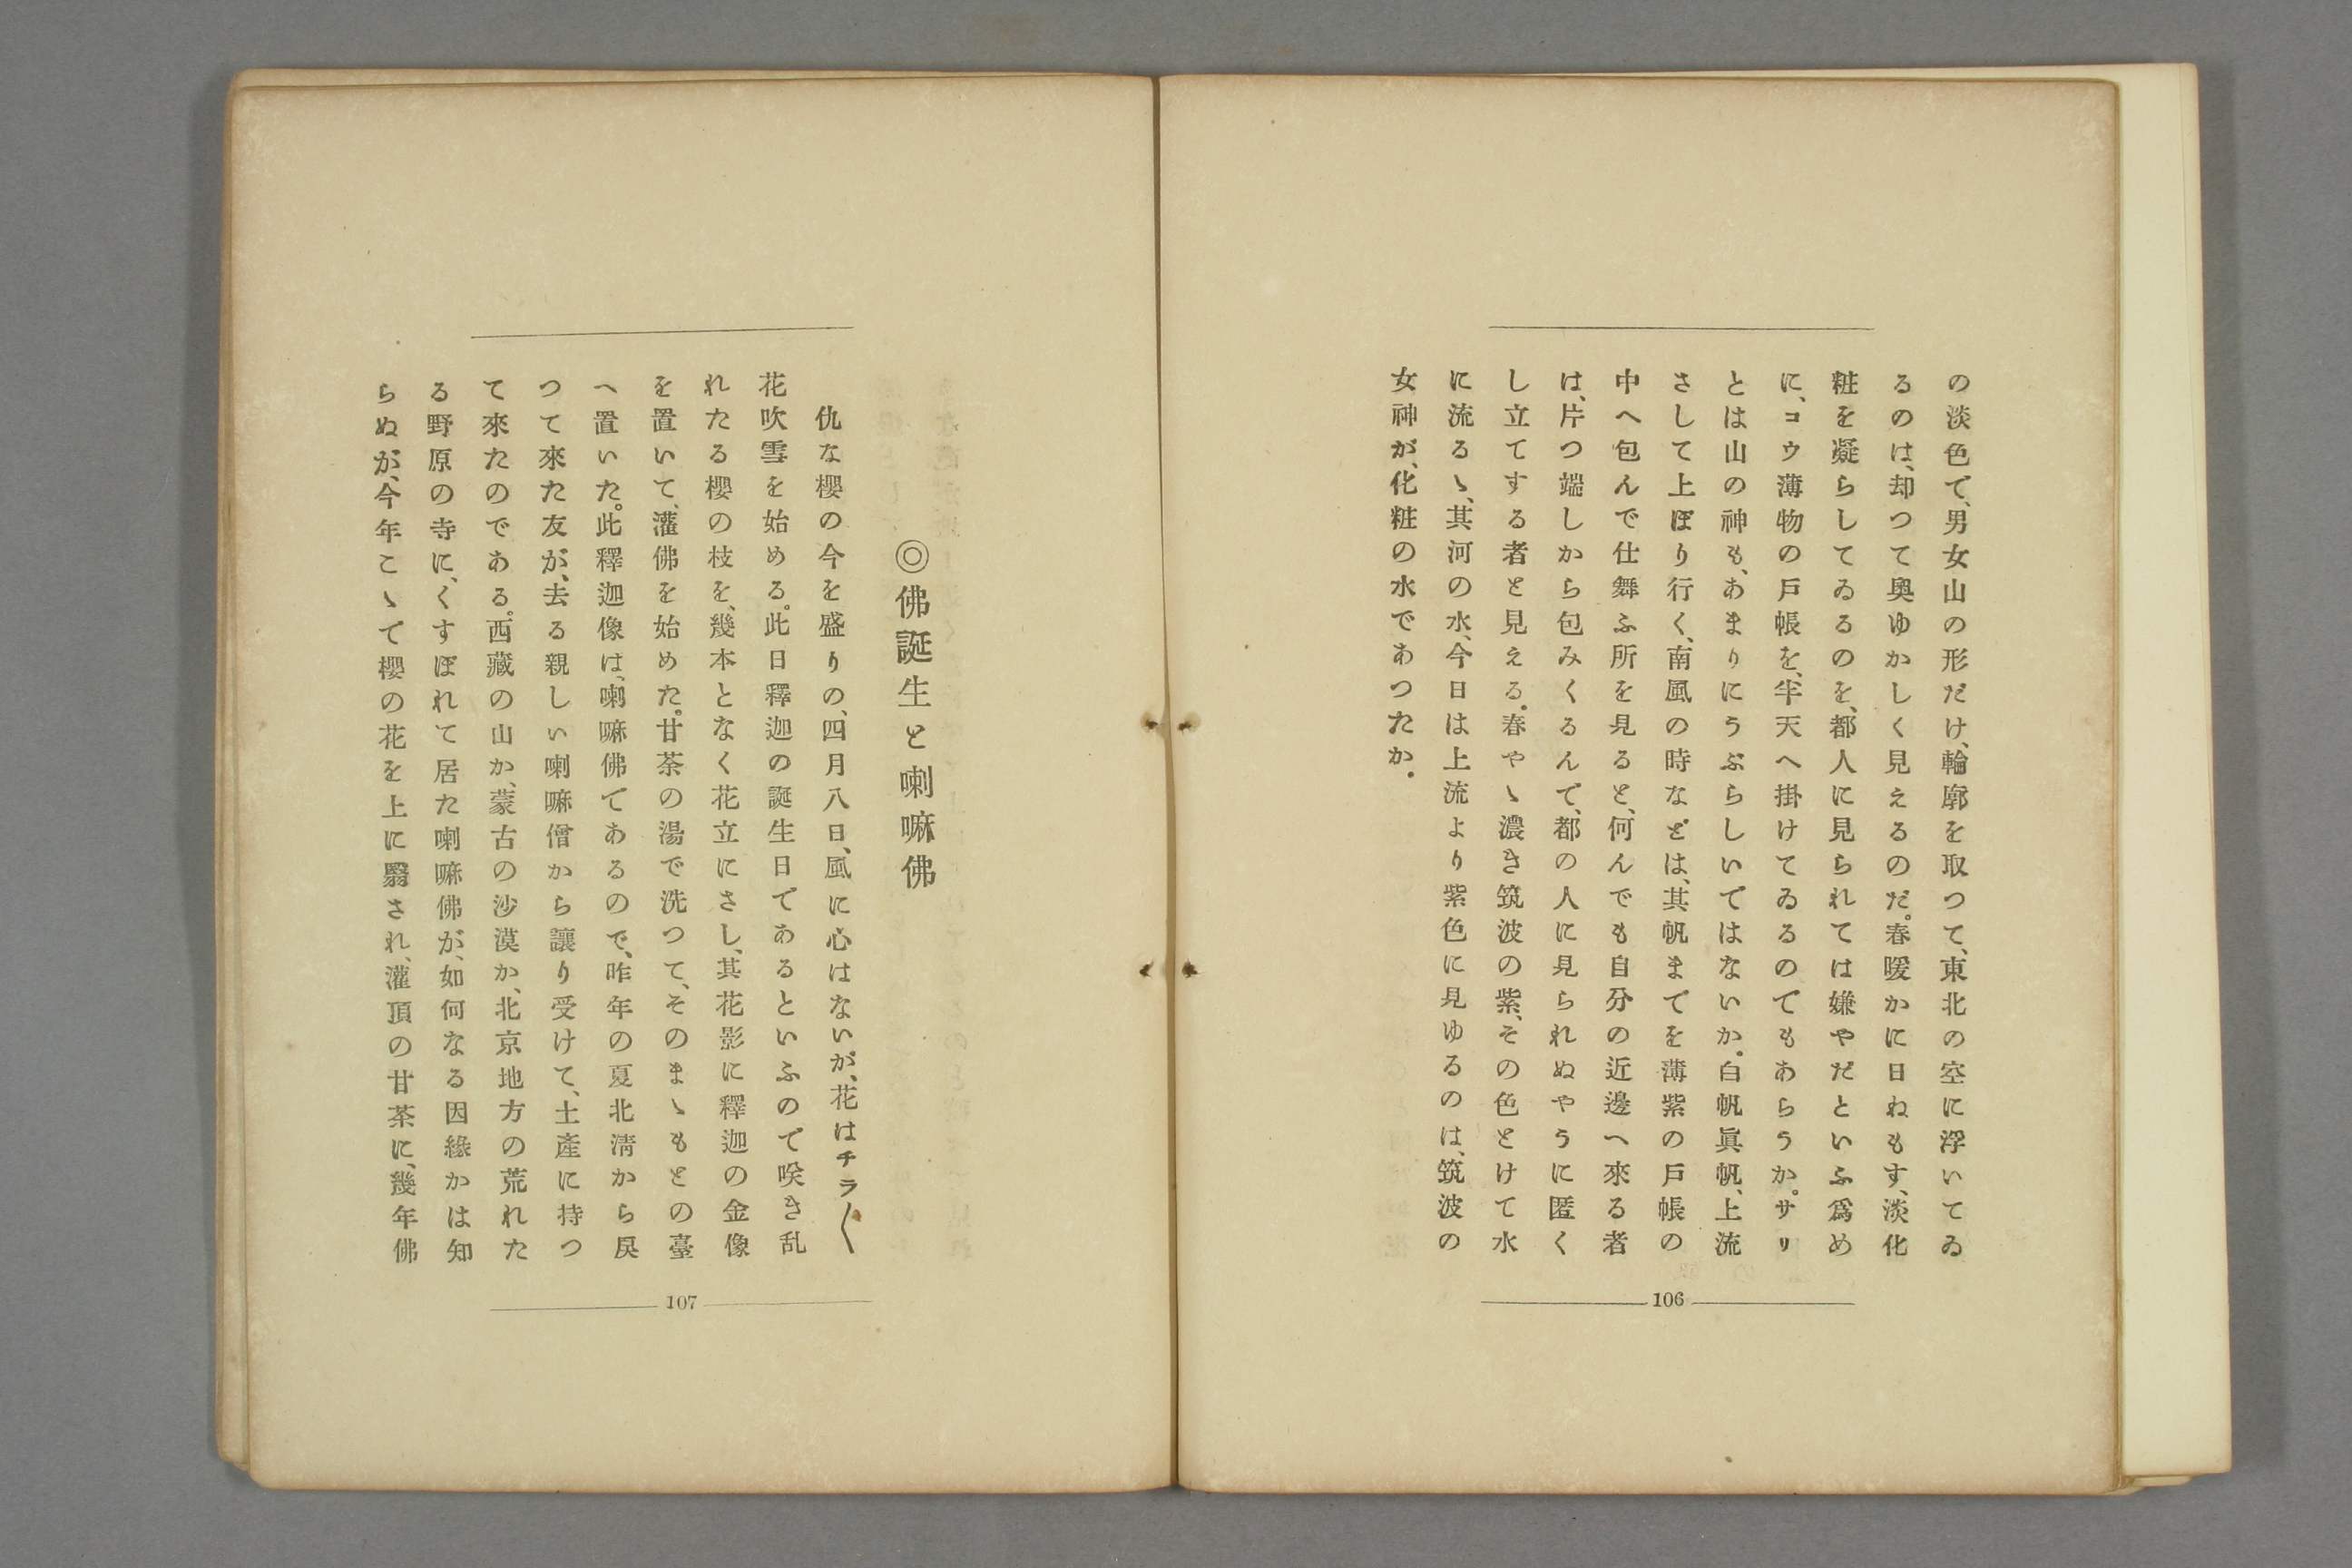 の淡色で、男女山の形だけ、輪廓を取つて、東北の空に浮いてゐ
るのは、却つて奥ゆかしく見えるのだ。春暖かに日ねもす、淡化
粧を凝らしてゐるのを、都人に見られては嫌やだといふ爲め
に、コウ薄物の戸帳を、半天へ掛けてゐるのでもあらうか。サリ
とは山の神も、あまりにうぶらしいではないか。白帆眞帆、上流
さして上ぼり行く、南風の時などは、其帆までを薄紫の戸帳の
中へ包んで仕舞ふ所を見ると、何んでも自分の近邊へ來る者
は、片つ端しから包みくるんで、都の人に見られぬやうに匿く
し立てする者と見える。春やゝ濃き筑波の紫、その色とけて水
に流るゝ、其河の水、今日は上流より紫色に見ゆるのは、筑波の
女神が、化粧の水であつたか。
106
◎佛誕生と喇嘛佛
仇な櫻の今を盛りの、四月八日、風に心はないが、花はチラ〱
花吹雪を始める。此日釋迦の誕生日であるといふので咲き乱
れたる櫻の枝を、幾本となく花立にさし、其花影に釋迦の金像
を置いて、灌佛を始めた。甘茶の湯で洗つて、そのまゝもとの臺
へ置いた。此釋迦像は、喇嘛佛であるので、昨年の夏北淸から戾
つて來た友が、去る親しい喇嘛僧から讓り受けて、土產に持つ
て來たのである。西藏の山か、蒙古の沙漠か、北京地方の荒れた
る野原の寺に、くすぼれて居た喇嘛佛が、如何なる因緣かは知
らぬが、今年こゝで櫻の花を上に翳され、灌頂の甘茶に、幾年佛
107